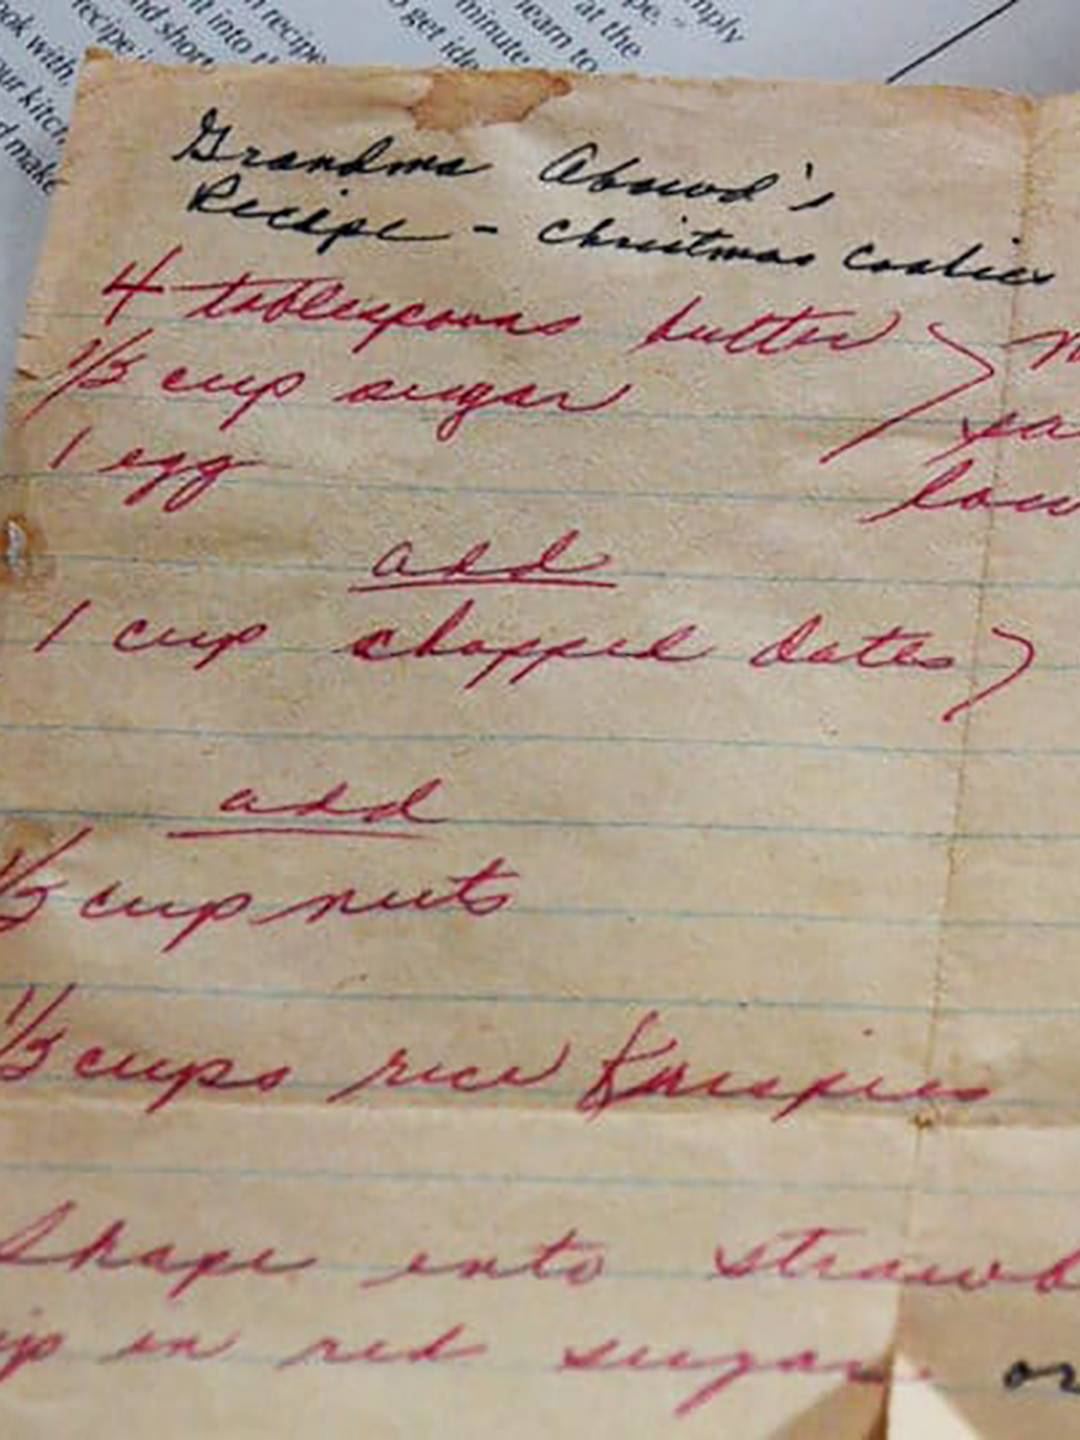 mply
pe."
at the
learn to
minute
to get ide
recipe
it into t
nd short
recipe i
ok with
our kitch
d make
Grandma Abowd's
Recipe - Christmas Cookies
4 tablespoons butter
1/3 cup sugar
1 egg
low
add
1 cup chopped dates
add
1/3 cup nuts
1/3 cups rice Krispies
Shape into strawb
ip in red sugar or